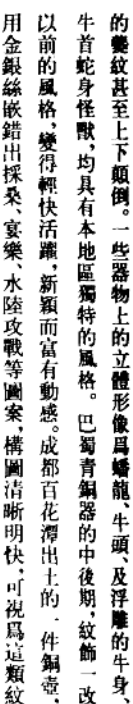 的夔紋甚至上下顛倒。一些器物上的立體形像爲蟠龍、牛頭、及浮雕的牛身、
牛首蛇身怪獸，均具有本地區獨特的風格。巴蜀青銅器的中後期，紋飾一改
以前的風格，變得輕快活躍，新穎而富有動感。成都百花潭出土的一件銅壺，
用金銀絲嵌錯出採桑、宴樂、水陸攻戰等圖案，構圖清晰明快，可視爲這類紋